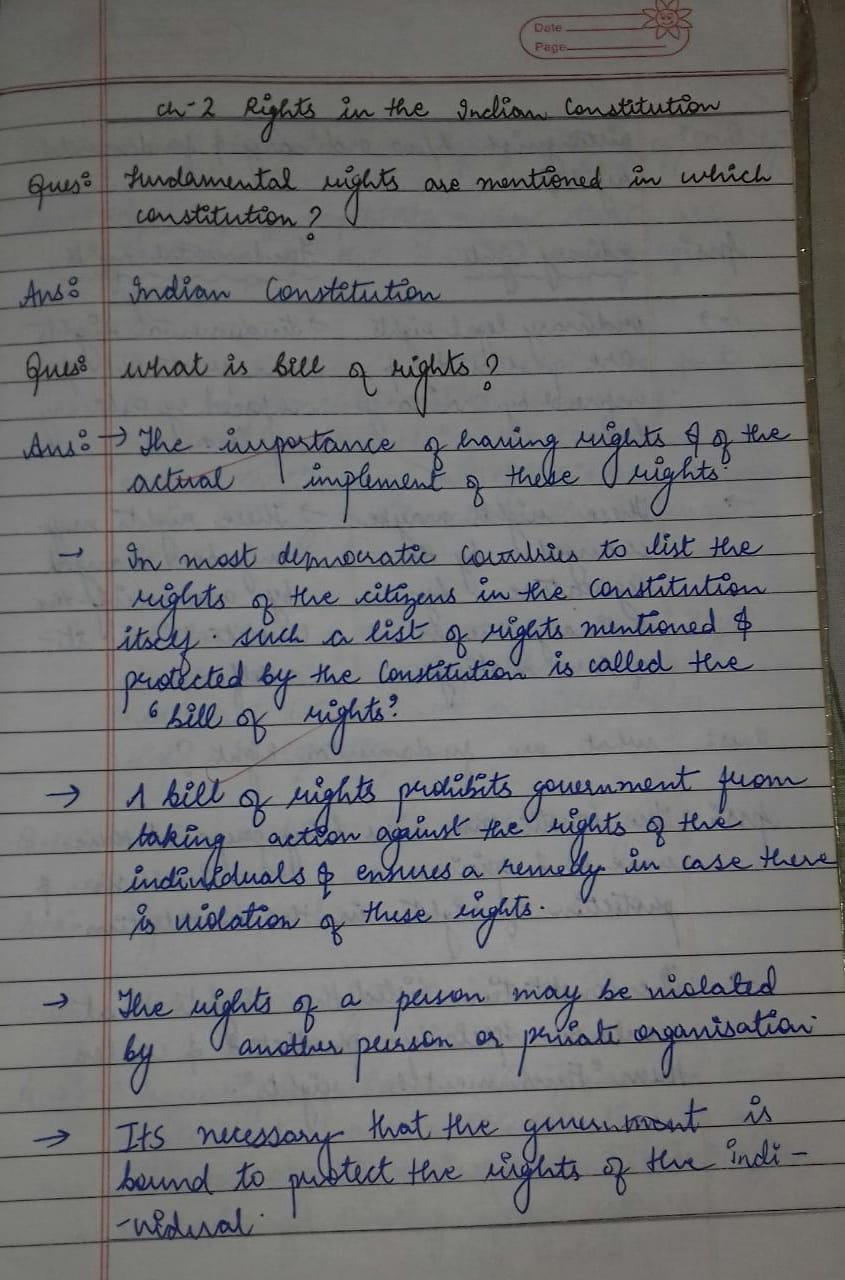 Date
Page
Ch-2 Rights in the Indian Constitution
Ques: Fundamental rights are mentioned in which
constitution?
Ans: Indian Constitution
Ques: what is bill of rights?
Ans: → The importance of having rights & of the
actual implement of these rights.
→ In most democratic countries to list the
rights of the citizens in the constitution
itself. such a list of rights mentioned &
protected by the Constitution is called the
'bill of rights'.
→ A bill of rights prohibits government from
taking action against the rights of the
individuals & ensures a remedy in case there
is violation of these rights.
→ The rights of a person may be violated
by another person or private organisation.
→ Its necessary that the government is
bound to protect the rights of the indi-
-vidual.